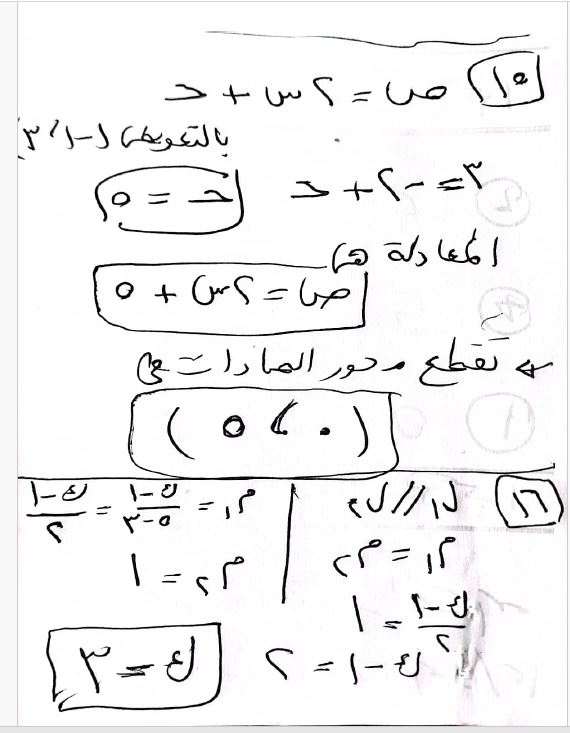 ١٥ ص = ٢س + حـ
بالتعويض (-١، ٣)
٣ = -٢ + حـ    حـ = ٥
المعادلة هي
ص = ٢س + ٥
تقطع محور الصادات في
(٠، ٥)
١٦ ل١ // ل٢    م١ = (ك-١)/(٥-٣) = (ك-١)/٢
م١ = م٢    م٢ = ١
(ك-١)/٢ = ١
ك-١ = ٢    ك = ٣